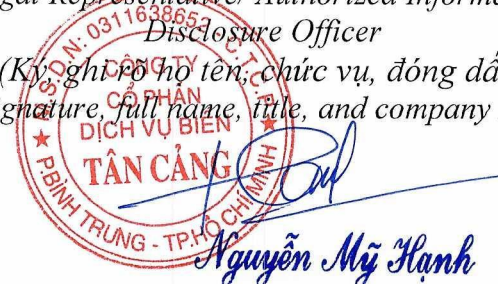 gal Representative/ Authorized Inform
Disclosure Officer
(Ký, ghi rõ họ tên, chức vụ, đóng dấ
gnature, full name, title, and company
M.S.D.N: 0311638652 - C.T.C.P
CÔNG TY
CỔ PHẦN
DỊCH VỤ BIỂN
TÂN CẢNG
P.BÌNH TRƯNG - TP.HỒ CHÍ MINH
Nguyễn Mỹ Hạnh